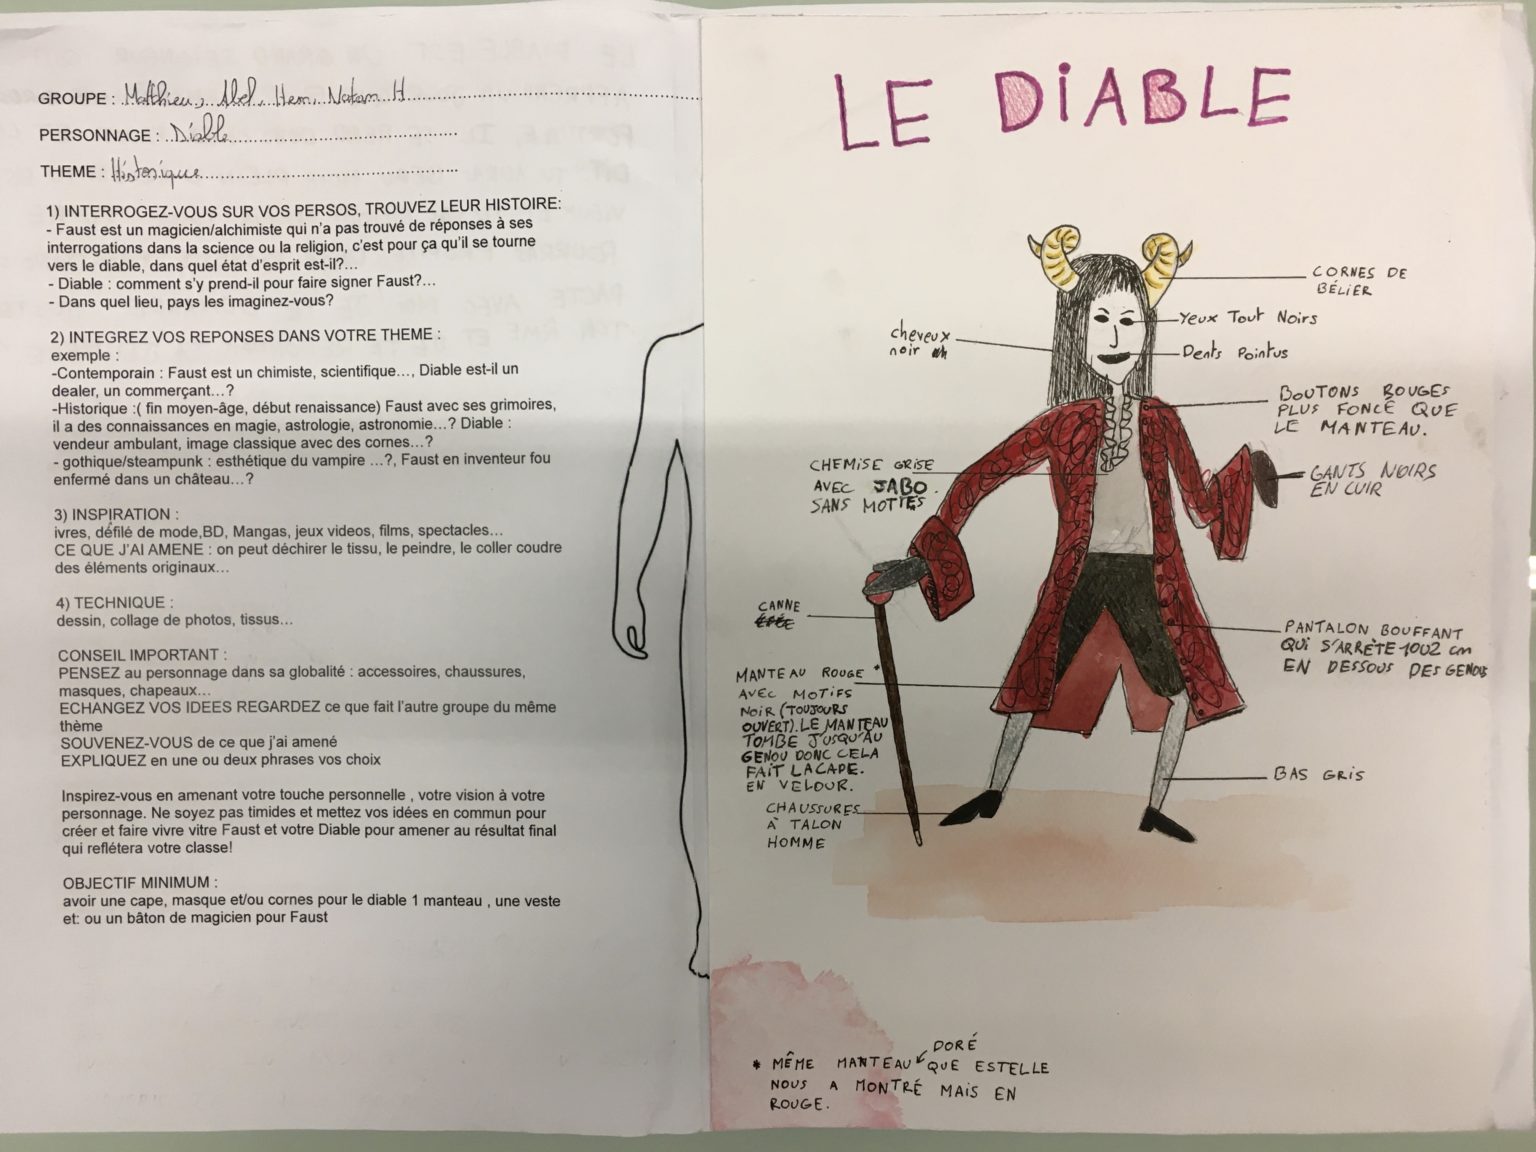 GROUPE : Matthieu, Abel, Hem, Natan H
PERSONNAGE : Diable
THEME : Historique
1) INTERROGEZ-VOUS SUR VOS PERSOS, TROUVEZ LEUR HISTOIRE:
- Faust est un magicien/alchimiste qui n'a pas trouvé de réponses à ses
interrogations dans la science ou la religion, c'est pour ça qu'il se tourne
vers le diable, dans quel état d'esprit est-il?...
- Diable : comment s'y prend-il pour faire signer Faust?...
- Dans quel lieu, pays les imaginez-vous?
2) INTEGREZ VOS REPONSES DANS VOTRE THEME :
exemple :
-Contemporain : Faust est un chimiste, scientifique..., Diable est-il un
dealer, un commerçant...?
-Historique :( fin moyen-âge, début renaissance) Faust avec ses grimoires,
il a des connaissances en magie, astrologie, astronomie...? Diable :
vendeur ambulant, image classique avec des cornes...?
- gothique/steampunk : esthétique du vampire ...?, Faust en inventeur fou
enfermé dans un château...?
3) INSPIRATION :
ivres, défilé de mode,BD, Mangas, jeux videos, films, spectacles...
CE QUE J'AI AMENE : on peut déchirer le tissu, le peindre, le coller coudre
des éléments originaux...
4) TECHNIQUE :
dessin, collage de photos, tissus...
CONSEIL IMPORTANT :
PENSEZ au personnage dans sa globalité : accessoires, chaussures,
masques, chapeaux...
ECHANGEZ VOS IDEES REGARDEZ ce que fait l'autre groupe du même
thème
SOUVENEZ-VOUS de ce que j'ai amené
EXPLIQUEZ en une ou deux phrases vos choix
Inspirez-vous en amenant votre touche personnelle , votre vision à votre
personnage. Ne soyez pas timides et mettez vos idées en commun pour
créer et faire vivre vitre Faust et votre Diable pour amener au résultat final
qui reflétera votre classe!
OBJECTIF MINIMUM :
avoir une cape, masque et/ou cornes pour le diable 1 manteau , une veste
et: ou un bâton de magicien pour Faust
LE DIABLE
CORNES DE
BÉLIER
Yeux Tout Noirs
cheveux
noir
Dents Pointus
BOUTONS ROUGES
PLUS FONCÉ QUE
LE MANTEAU.
CHEMISE GRISE
AVEC JABO.
SANS MOTTES
GANTS NOIRS
EN CUIR
CANNE
ÉPÉE
PANTALON BOUFFANT
QUI S'ARRÊTE 1OU2 cm
EN DESSOUS DES GENOUS
MANTEAU ROUGE *
AVEC MOTIFS
NOIR (TOUJOURS
OUVERT). LE MANTEAU
TOMBE JUSQU'AU
GENOU DONC CELA
FAIT LA CAPE.
EN VELOUR.
BAS GRIS
CHAUSSURES
À TALON
HOMME
DORÉ
* MÊME MANTEAU QUE ESTELLE
NOUS A MONTRÉ MAIS EN
ROUGE.